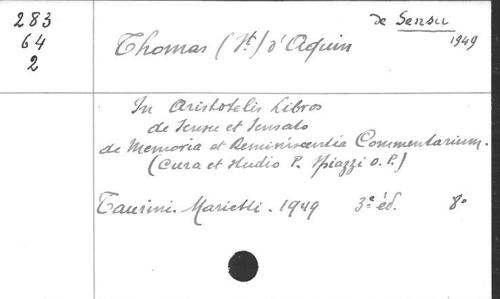 283
64
2
de Sensu
1949
Thomas (St.) d'Aquin
In Aristotelis Libros
de Sensu et Sensato
de Memoria et Reminiscentia Commentarium.
(Cura et studio P. Spiazzi O.P.)
Taurini. Marietti. 1949 3e éd. 8o